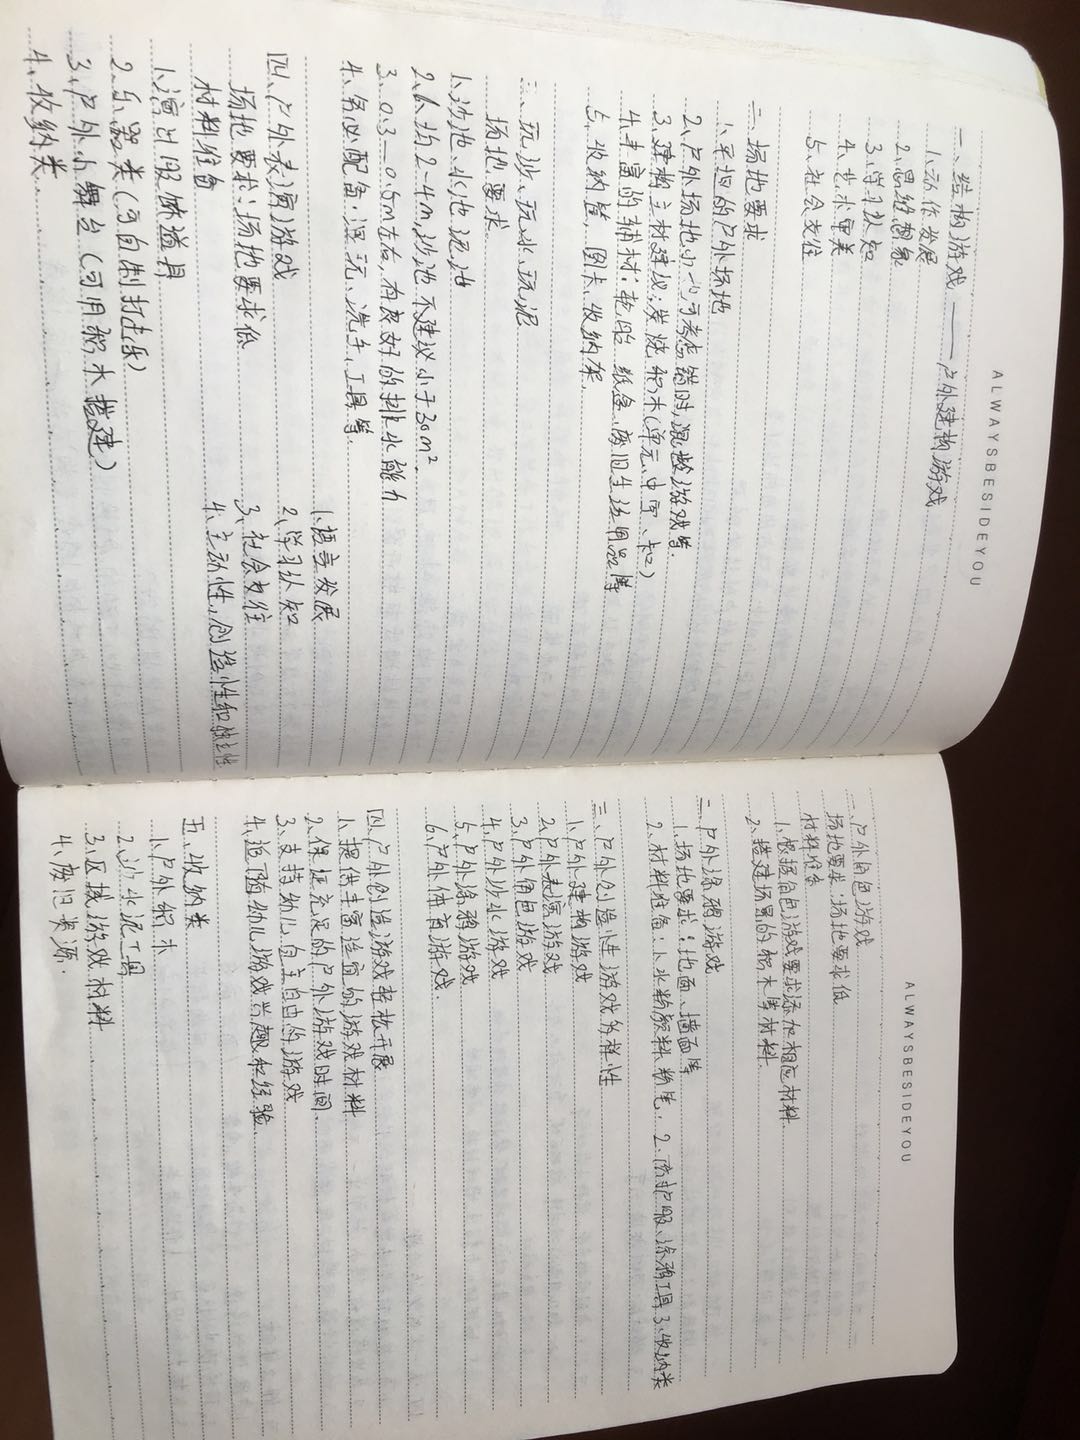 ALWAYSBESIDEYOU
一、结构游戏——户外建构游戏
1、动作发展
2、思维想象
3、学习认知
4、艺术审美
5、社会交往
二、场地要求
1、平坦的户外场地
2、户外场地小,可考虑错时,混龄游戏等.
3、建构主材建议:炭烧积木(单元、中空、)
4、丰富的辅材:轮胎、纸盒、废旧生活用品等
5、收纳筐,图卡、收纳架.
三、玩沙、玩水、玩泥
场地要求
1、沙池、水池、泥池
2、人均2-4m,沙池不建议小于30m²
3、0.3—0.5m左右,有良好的排水能力
4、务必配备:深玩、洗手,工具等.
1、语言发展
四、户外表演游戏
2、学习认知
场地要求:场地要求低
3、社会交往
材料准备
4、主动性,创造性和独立性
1、演出服饰道具
2、乐器类(可自制打击乐)
3、户外小舞台(可用积木搭建)
4、收纳类.
ALWAYSBESIDEYOU
一、户外角色游戏
场地要求:场地要求低
材料准备
1、根据角色游戏要求添加相应材料
2、搭建场景的积木等材料.
二、户外涂鸦游戏
1、场地要求:地面、墙面等
2、材料准备:1、水粉颜料、粉笔. 2、防护服、涂鸦工具 3、收纳类
三、户外创造性游戏多样性
1、户外建构游戏
2、户外表演游戏
3、户外角色游戏
4、户外沙水游戏
5、户外涂鸦游戏
6、户外体育游戏.
四、户外创造游戏轻松开展
1、提供丰富适宜的游戏材料
2、保证充足的户外游戏时间.
3、支持幼儿自主自由的游戏
4、追随幼儿游戏兴趣和经验.
五、收纳类
1、户外积木
2、沙水泥工具
3、区域游戏材料
4、废旧类源.